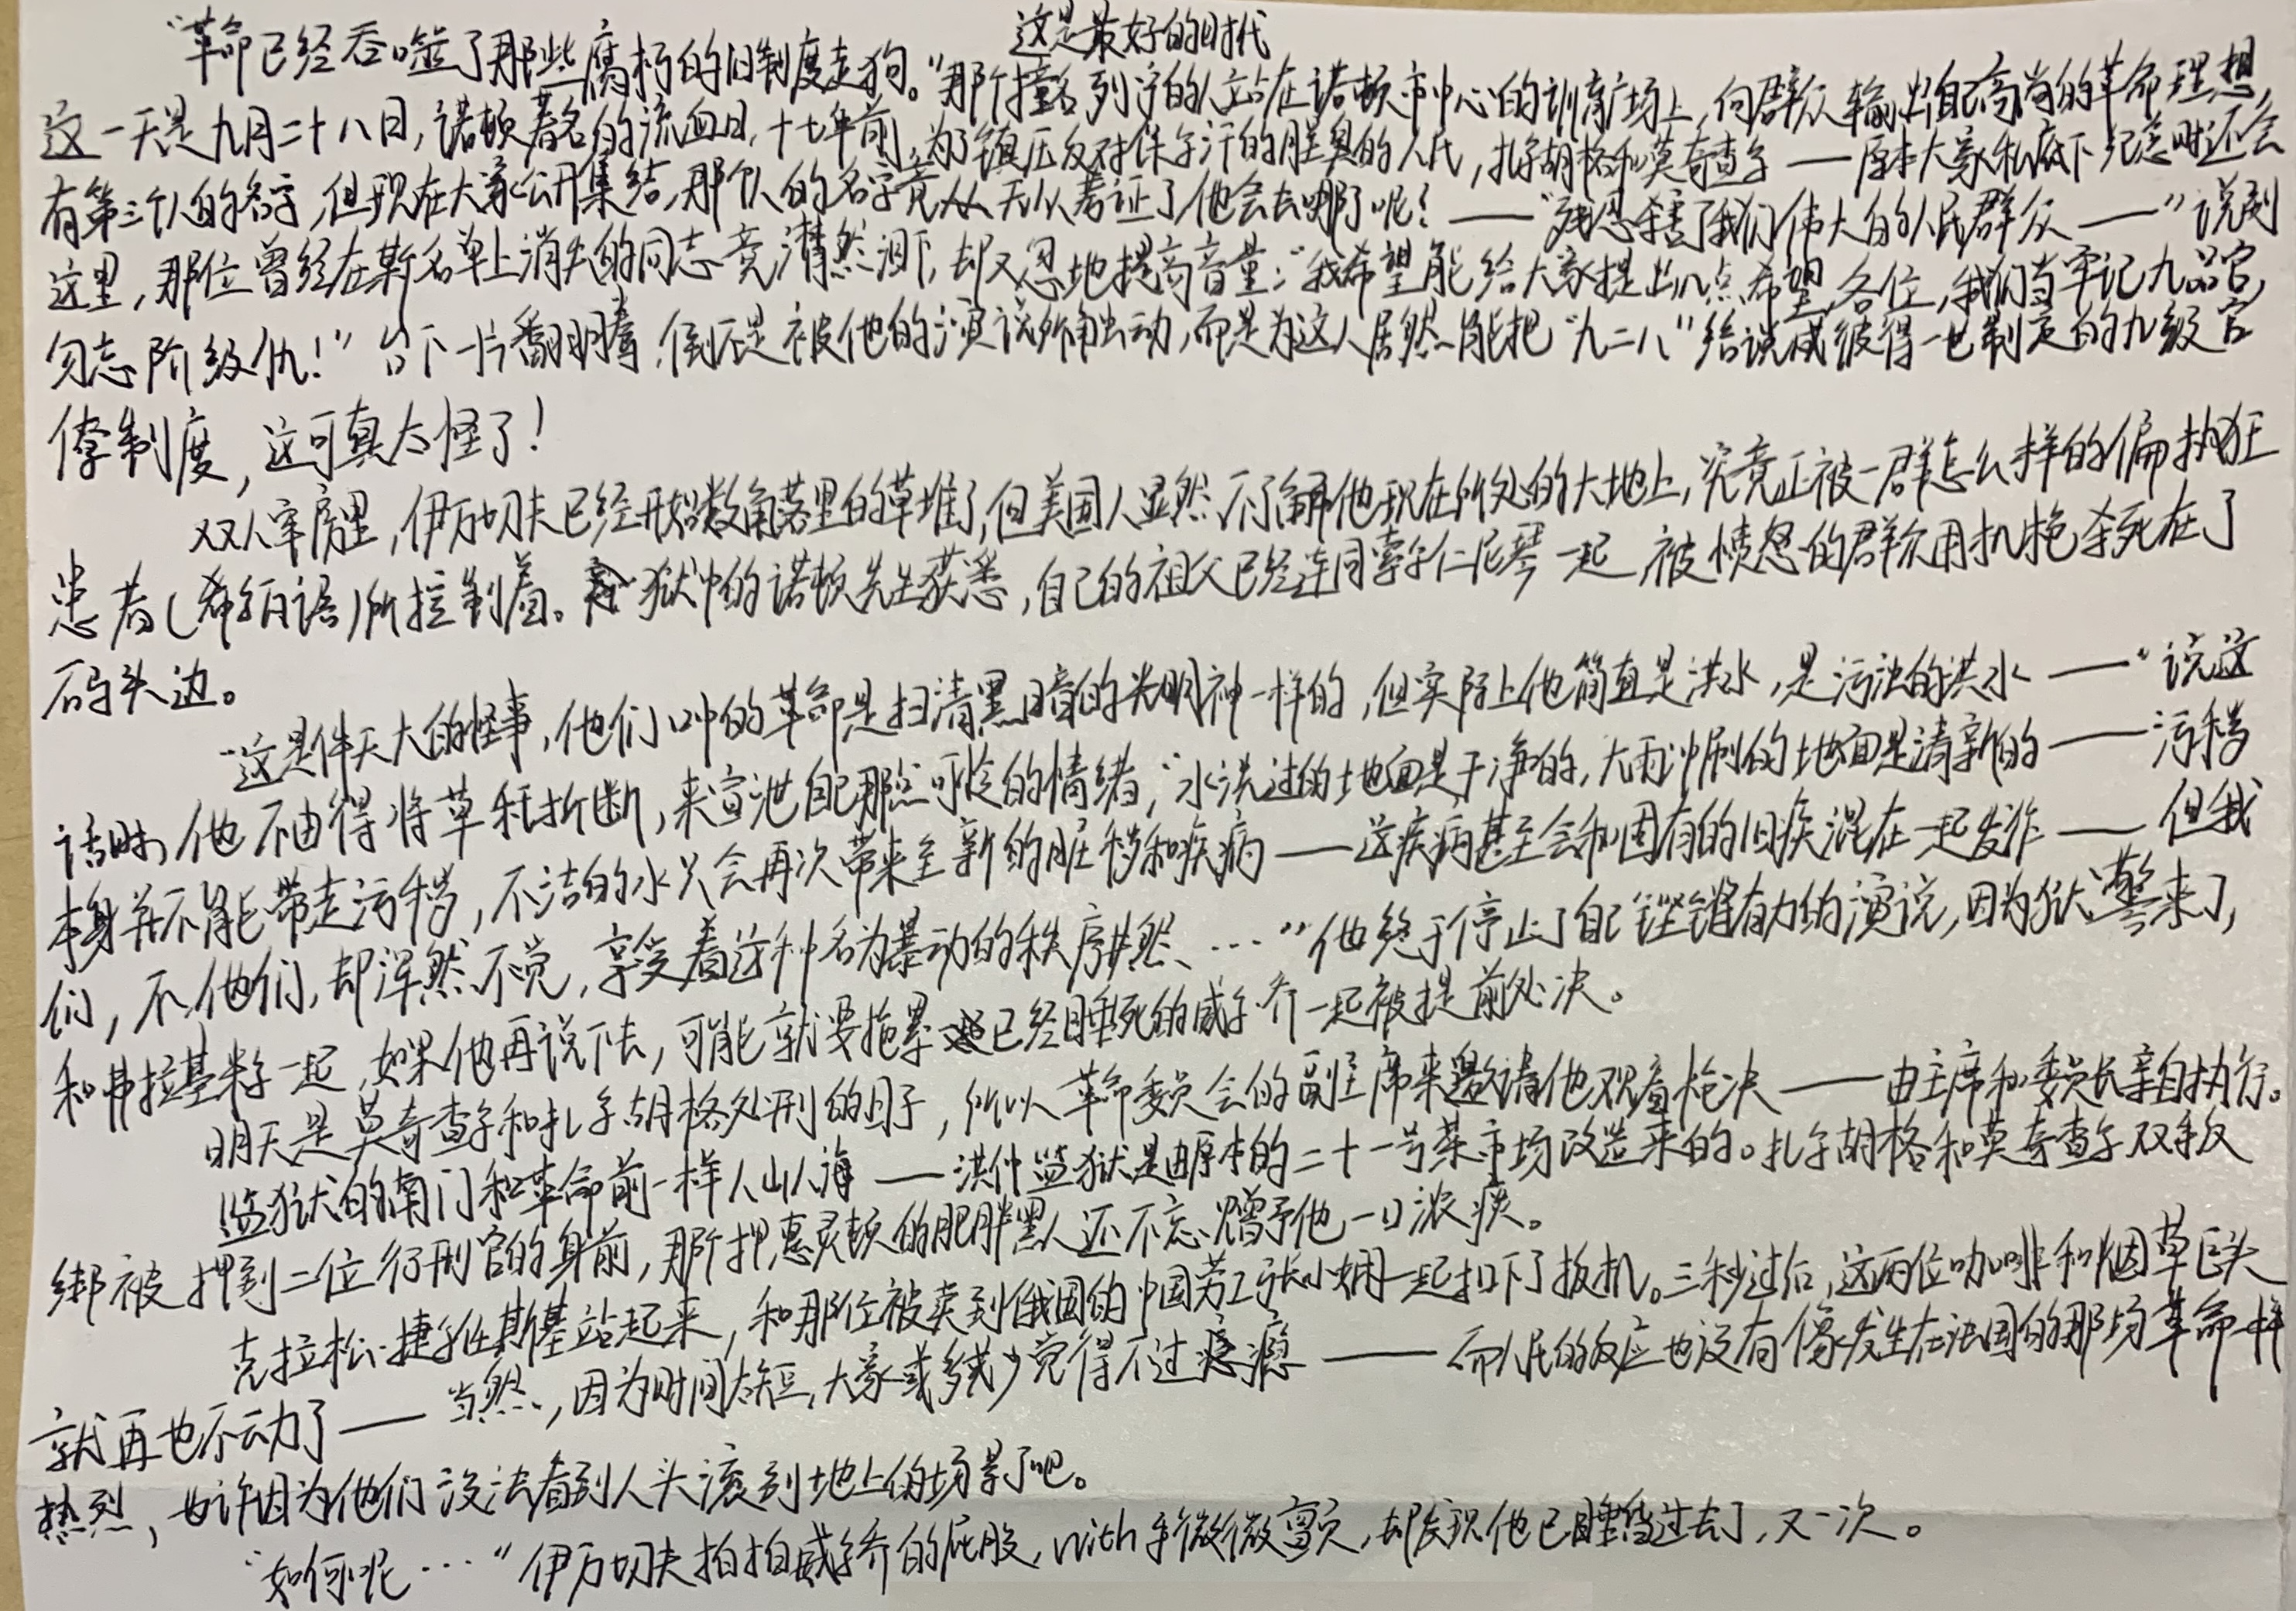 这是最好的时代
“革命已经吞噬了那些腐朽的旧制度走狗。”那个撞名列宁的人站在诺顿市中心的训育广场上，向群众输出自己高尚的革命理想，
这一天是九月二十八日，诺顿著名的流血日，十七年前，为了镇压反对保字汗的腥臭的人民，扎字胡格和莫奇查字——原本大家私底下纪念时还会
有第三个人的名字，但现在大家公开集结，那个人的名字竟从无从考证了，他会去哪了呢？——“残忍杀害了我们伟大的人民群众——”说到
这里，那位曾经在新名单上消失的同志竟潸然泪下，却又忍地提高音量：“我希望能给大家提出几点希望，各位，我们当牢记九品官，
勿忘阶级仇！”台下一片翻腾，倒不是被他的演说所触动，而是为这人居然能把“九二八”给说成彼得一世制定的九级官
僚制度，这可真太怪了！
双人牢房里，伊万切夫已经开始数角落里的草堆了，但美国人显然不了解他现在所处的大地上，究竟正被一群怎么样的偏执狂
患者（希伯语）所控制着。狱中的诺顿先生获悉，自己的祖父已经连同索字仁尼琴一起被愤怒的群众用扒拖杀死在了
码头边。
“这是件天大的怪事，他们口中的革命是扫清黑暗的光明神一样的，但实际上他简直是洪水，是污浊的洪水——”说这
话时，他不由得将草秆折断，来宣泄自己那点可怜的情绪，“水洗过的地面是干净的，大雨冲刷的地面是清新的——污秽
本身并不能带走污秽，不洁的水只会再次带来全新的脏秽和疾病——这疾病甚至会和固有的旧疾混在一起发作——但我
们，不，他们，却浑然不觉，享受着这种名为暴动的秩序井然……”他终于停止了自己铿锵有力的演说，因为狱警来了，
和弗拉基米字一起，如果他再说下去，可能就要拖累已经睡死的威字乔一起被提前处决。
明天是莫奇查字和扎字胡格处刑的日子，所以革命委员会的副主席来邀请他观看枪决——由主席和委员长亲自执行。
监狱的南门和革命前一样人山人海——洪什监狱是由原本的二十一号菜市场改造来的。扎字胡格和莫奇查字双手反
绑被押到二位行刑官的身前，那个押惠灵顿的肥胖黑人还不忘赠予他一口浓痰。
克拉松·捷字任斯基站起来，和那位被卖到俄国的中国劳工张小娴一起扣下了扳机。三秒过后，这两位咖啡和烟草巨头
就再也不动了——当然，因为时间太短，大家或多或少觉得不过瘾——而人民的反应也没有像发生在法国的那场革命一样
热烈，也许因为他们没法看到人头滚到地上的场景了吧。
“如何呢……”伊万切夫拍拍威字乔的屁股，with手微微颤，却发现他已睡过去了，又一次。